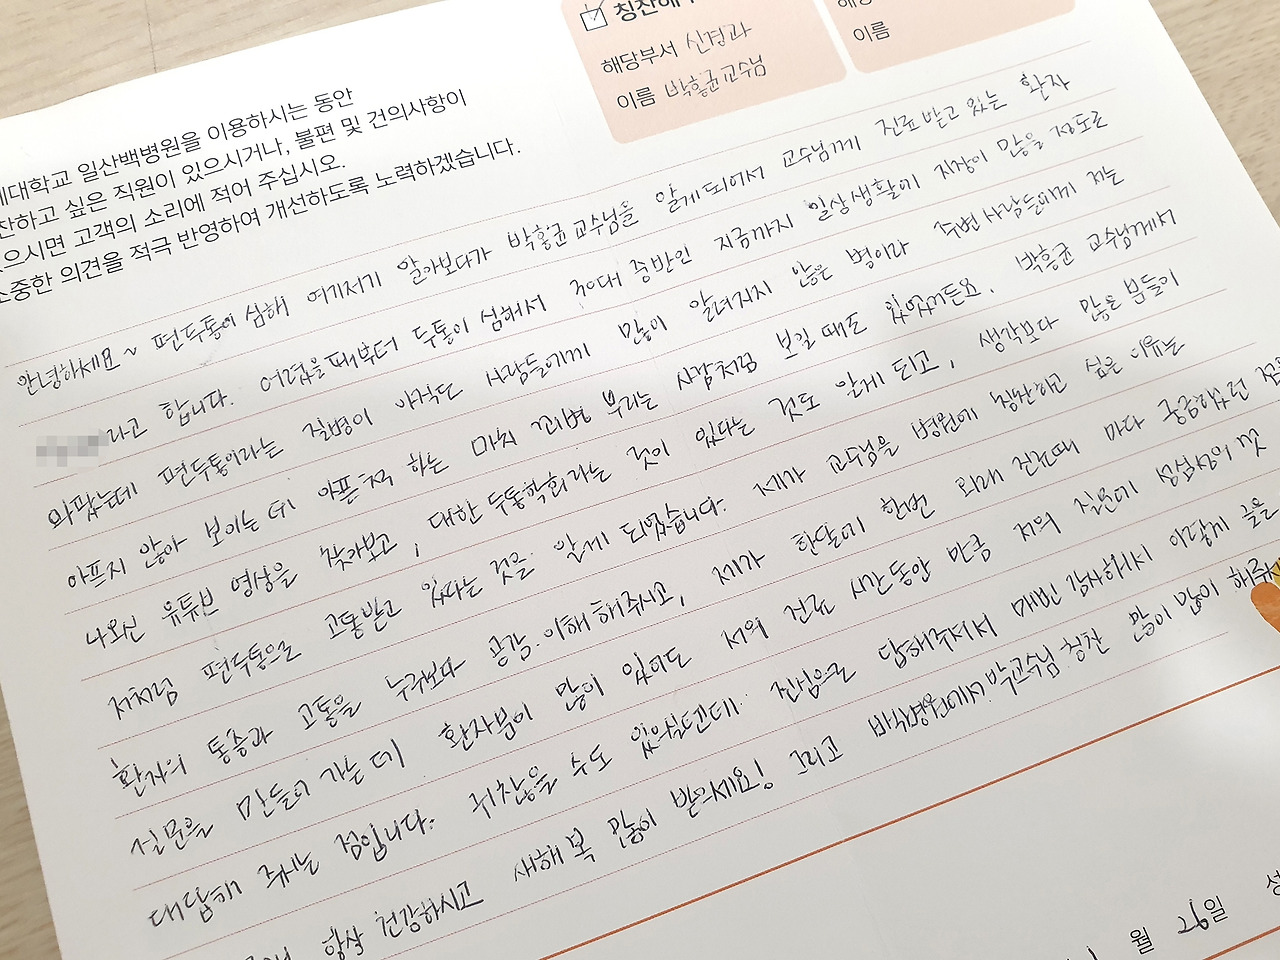 칭찬해
해당부서 신경과
이름 박홍균교수님
이름
대학교 일산백병원을 이용하시는 동안
찬하고 싶은 직원이 있으시거나, 불편 및 건의사항이
있으시면 고객의 소리에 적어 주십시오.
소중한 의견을 적극 반영하여 개선하도록 노력하겠습니다.
안녕하세요~ 편두통이 심해 여기저기 알아보다가 박홍균교수님을 알게되어서 교수님께 진료받고 있는 환자
라고 합니다. 어렸을때부터 두통이 심해서 30대 중반인 지금까지 일상생활에 지장이 많을 정도로
아팠는데 편두통이라는 질병이 아직도 사람들에게 많이 알려지지 않은 병이라 주변사람들에게 저는
아프지 않아 보이는데 아픈척 하는 마치 꾀병 부리는 사람처럼 보일때도 있었거든요. 박홍균 교수님께서
나오신 유튜브 영상을 찾아보고, 대한두통학회라는 것이 있다는 것도 알게 되고, 생각보다 많은 분들이
저처럼 편두통으로 고통받고 있다는 것을 알게 되었습니다. 제가 교수님을 병원에 칭찬하고 싶은 이유는
환자의 통증과 고통을 누구보다 공감.이해해주시고, 제가 한달에 한번 외래 진료때 마다 궁금했던
질문을 만들어 가는데 환자분이 많이 있어도 저의 진료 시간동안 만큼 저의 질문에 성심성의껏
대답해 주시는 점입니다. 귀찮을 수도 있으실텐데 진심으로 답해주셔서 매번 감사해서 이렇게 글을
항상 건강하시고 새해 복 많이 받으세요! 그리고 백병원에서 박교수님 칭찬 많이 많이 해주
월 26일